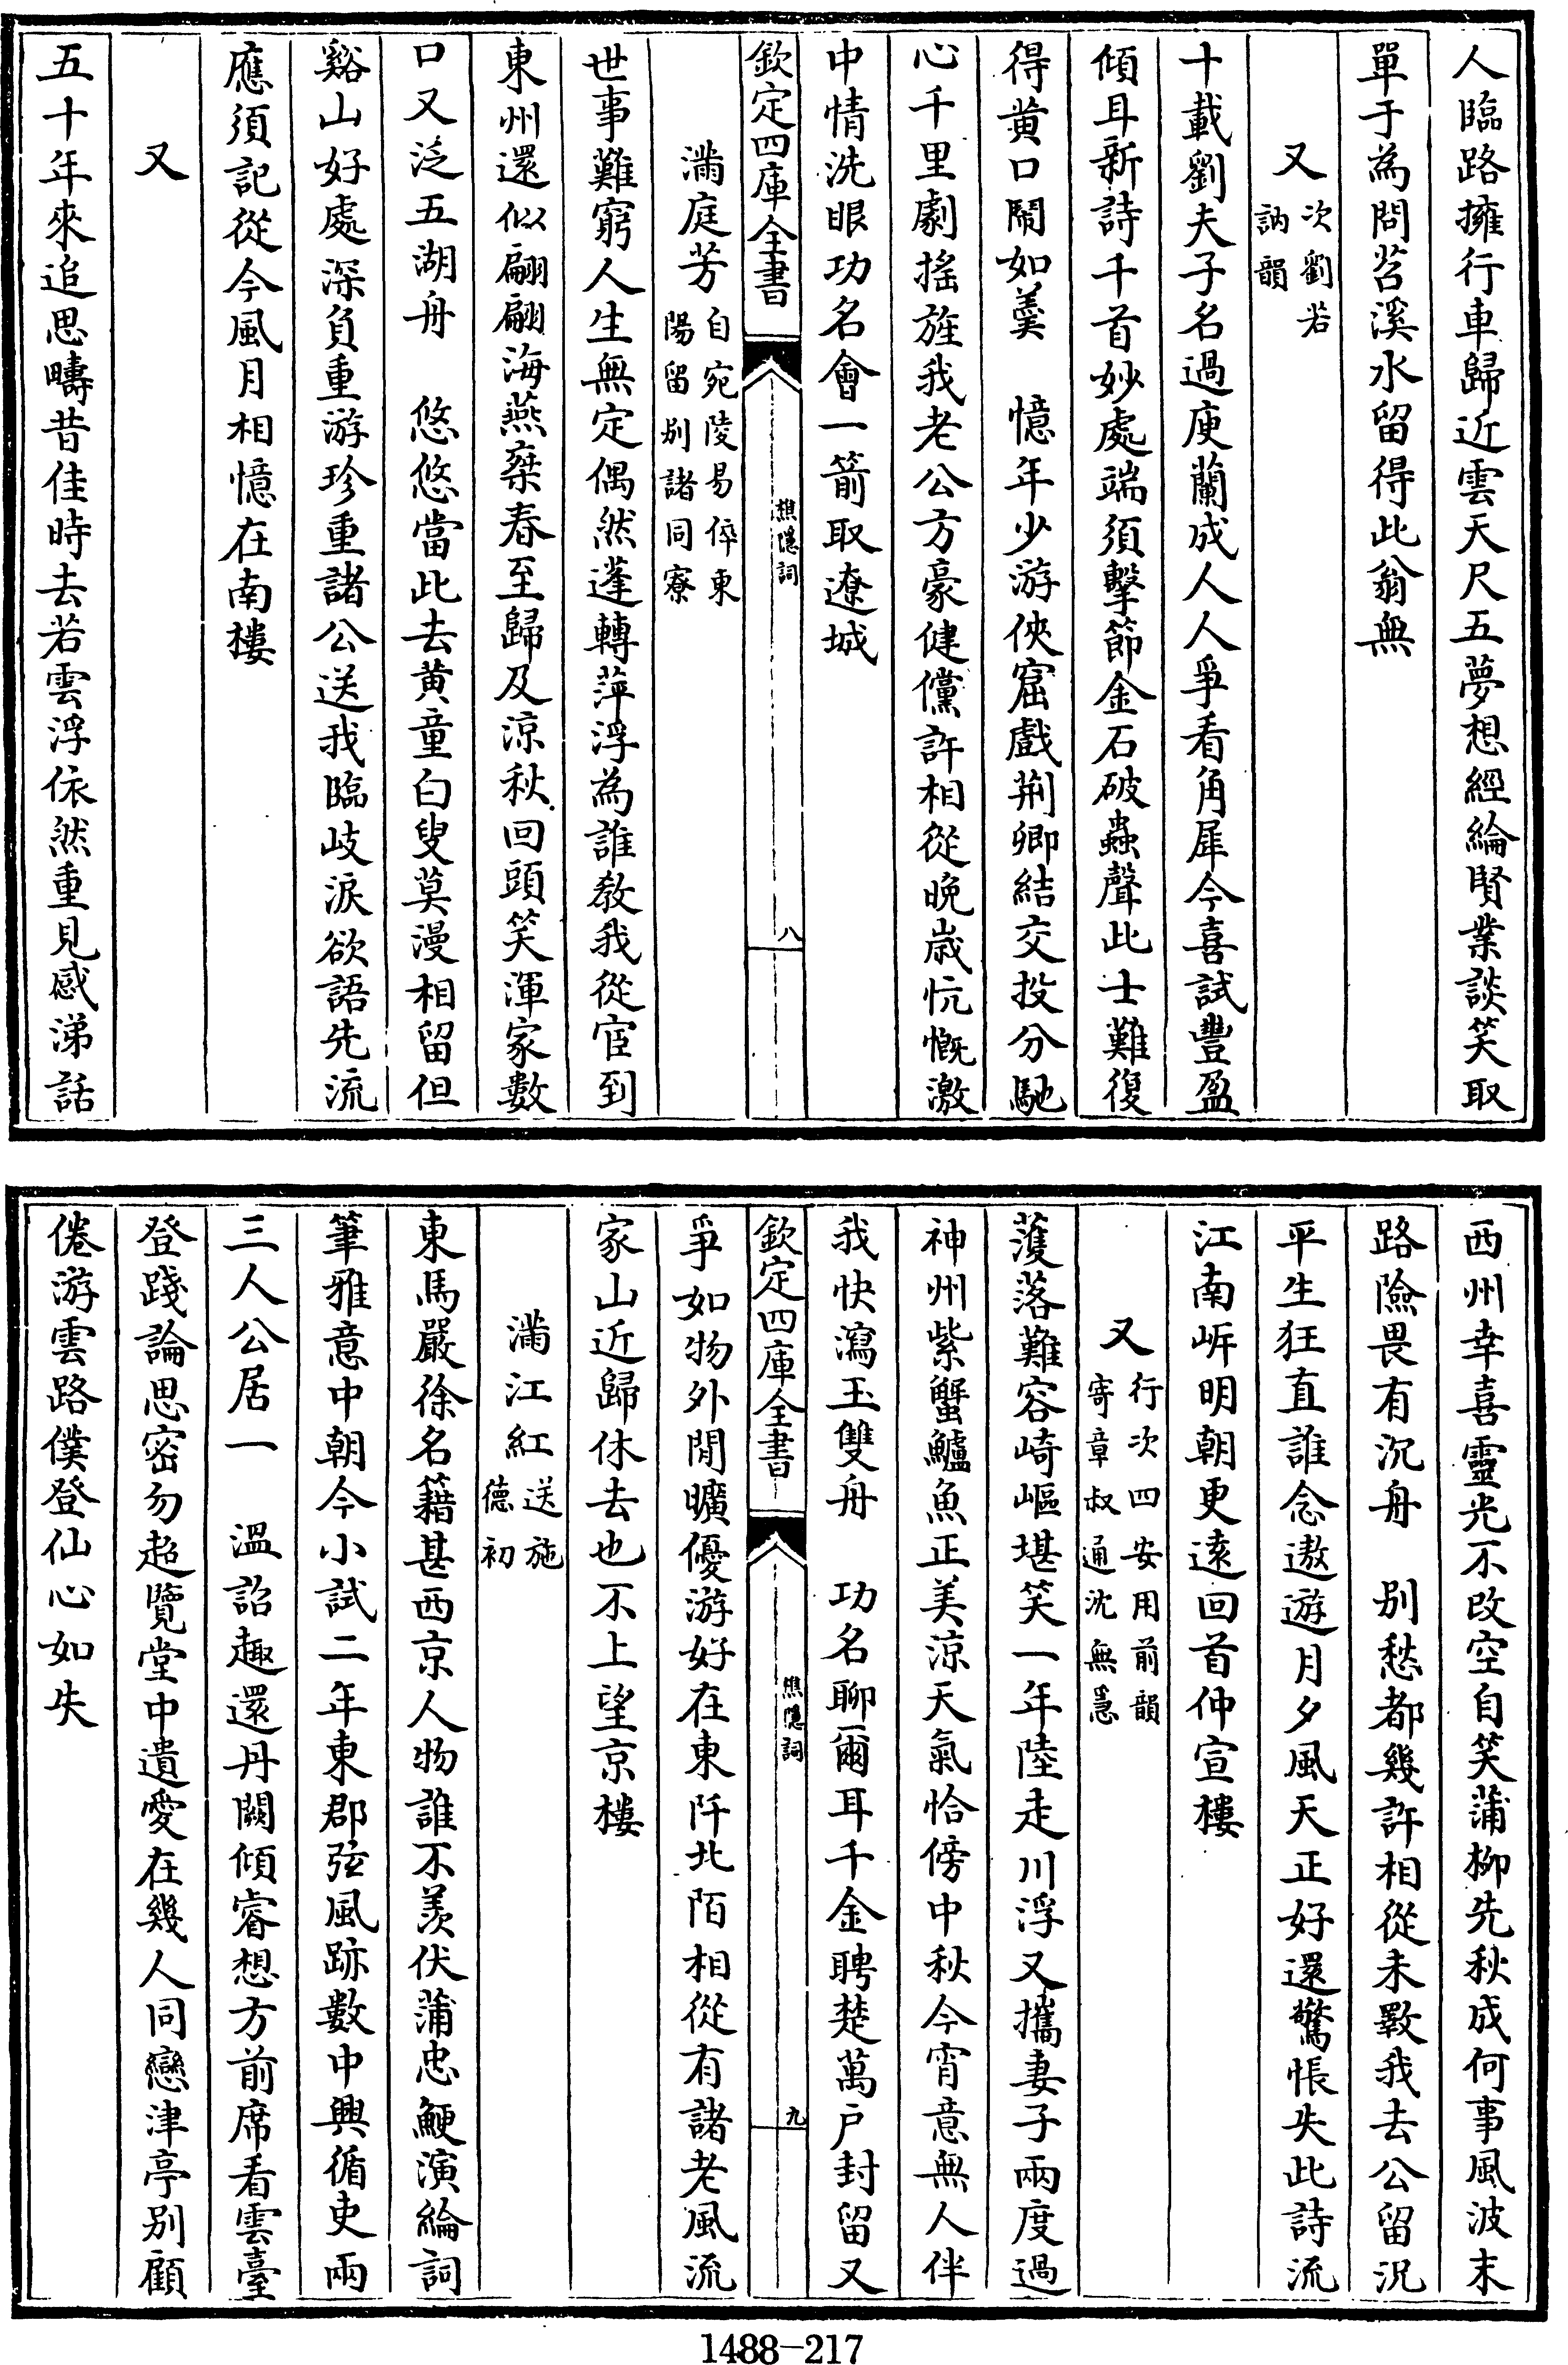 人臨路擁行車歸近雲天尺五夢想經綸賢業談笑取
單于為問苕溪水留得此翁無
又次劉若訥韻
十載劉夫子名過庾蘭成人人爭看角犀今喜試豐盈
傾耳新詩千首妙處端須擊節金石破蟲聲此士難復
得黄口鬧如羮　憶年少游俠窟戲荆卿結交投分馳
心千里劇搖旌我老公方豪健儻許相從晚歲忼慨激
中情洗眼功名會一箭取遼城
欽定四庫全書
樵隱詞
八
滿庭芳自宛陵易倅東陽留别諸同寮
世事難窮人生無定偶然蓬轉萍浮為誰教我從宦到
東州還似翩翩海燕桒春至歸及涼秋回頭笑渾家數
口又泛五湖舟　悠悠當此去黄童白叟莫漫相留但
谿山好處深負重游珍重諸公送我臨歧淚欲語先流
應須記從今風月相憶在南樓
又
五十年來追思疇昔佳時去若雲浮依然重見感涕話
西州幸喜靈光不改空自笑蒲柳先秋成何事風波末
路險畏有沉舟　别愁都幾許相從未斁我去公留況
平生狂直誰念遨遊月夕風天正好還驚悵失此詩流
江南岸明朝更逺回首仲宣樓
又行次四安用前韻寄章叔通沈無隱
濩落難容崎嶇堪笑一年陸走川浮又攜妻子兩度過
神州紫蟹鱸魚正美涼天氣恰傍中秋今宵意無人伴
我快瀉玉雙舟　功名聊爾耳千金聘楚萬户封留又
欽定四庫全書
樵隱詞
九
爭如物外閒曠優游好在東阡北陌相從有諸老風流
家山近歸休去也不上望京樓
滿江紅送施德初
東馬嚴徐名籍甚西京人物誰不羨伏蒲忠鯁演綸詞
筆雅意中朝今小試二年東郡弦風跡數中興循吏兩
三人公居一　溫詔趣還丹闕傾睿想方前席看雲臺
登踐論思密勿超覽堂中遺愛在幾人同戀津亭别顧
倦游雲路僕登仙心如失
1488-217